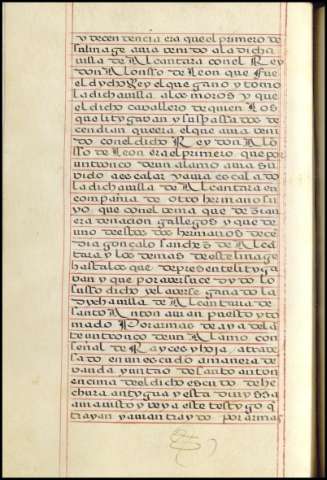 y decendencia era que el primero de
su linage auia benido a la dicha
villa de Alcantara con el Rey
don Alonsso de Leon que fue
el dycho Rey el que gano y tomo
la dicha villa a los moros y que
el dicho cavallero de quien los
que litygavan y sus passados de
cendian que era el que auia beni
do con el dicho Rey don Alo
sso de Leon era el primero que por
un tronco de un alamo auia su
vido a escalar y auia escalado
la dicha villa de Alcantara en
compañia de otro hermano su
yo que con el tenia que s
era de nacion gallegos y que de
uno de estos dos hermanos dece
dia gonçalo sanches de Alca
tara y los demas de este linage
hasta los que de presente lityga
van y que por averse dydo lo
susso dicho y el averse ganado la
dycha villa de Alcantara de
santo Anton auian puesto y to
mado Por armas de aya dela
te un tronco de un Alamo con
señal de Rayzes y hoja atraue
sado en un escudo a manera de
vanda y un tao de santo anton
encima de el dicho escudo de he
chura antygua y esta divyssa
aviavisto y veya este testygo q
trayan y auian traydo por armas